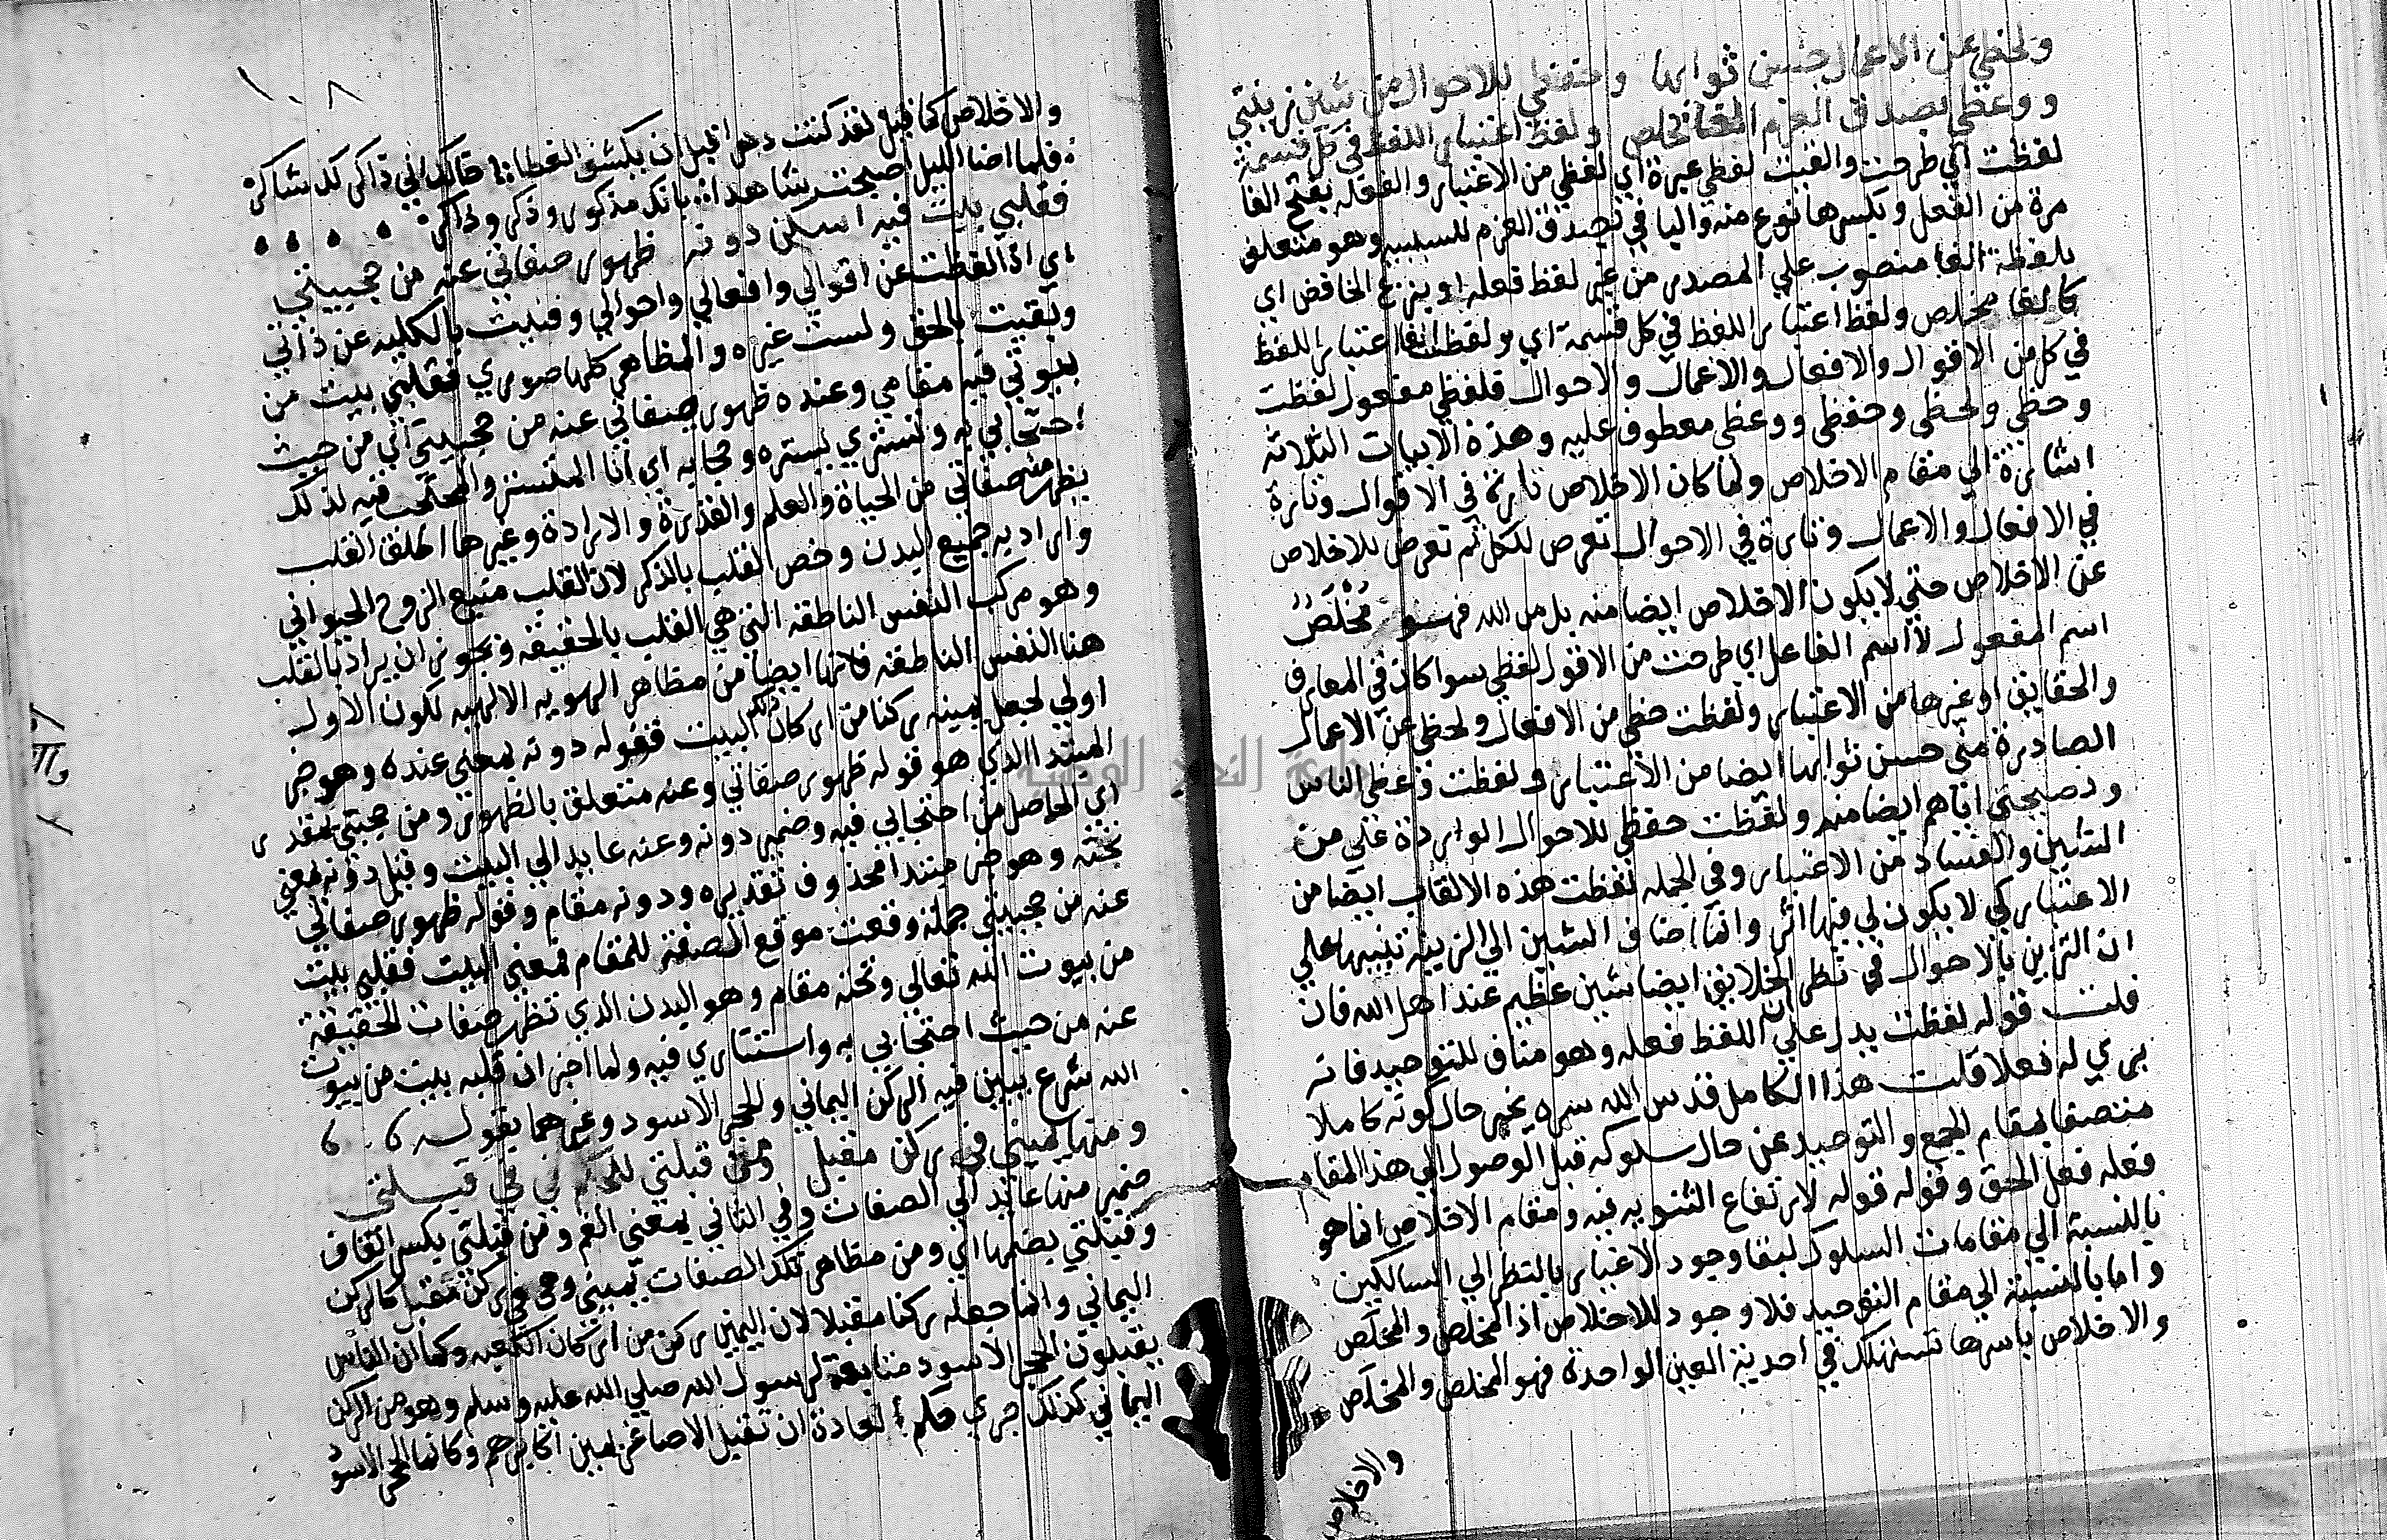 ولحظي عن الاعمال حسن ثوابها وحفظي للاحوال من شين زينتي
ووعظي بصدق العزم القا مخلص ولفظ اعتبار اللفظ في كل قسمة
لفظت اي طرحت والقيت لفظي عبرة اي لفظي من الاغيار والفعله بفتح الفا
مرة من الفعل وبكسرها نوع منه واليا في بصدق العزم للسببيه وهو متعلق
بلفظة القا منصوب علي المصدر من غير لفظ فعله او بنزع الخافض اي
كالقا مخلص ولفظ اعتبار اللفظ في كل قسمة اي ولفظت القا اعتبار اللفظ
في كل من الاقوال والافعال والاعمال والاحوال فلفظي مفعول لفظت
وحظي ولحظي وحفظي ووعظي معطوف عليه وهذه الابيات الثلاثة
اشارة الي مقام الاخلاص ولما كان الاخلاص تارة في الاقوال وتارة
في الافعال والاعمال وتارة في الاحوال تعرض للكل ثم تعرض للاخلاص
عن الاخلاص حتي لا يكون الاخلاص ايضا منه بل من الله فهو مُخْلَصٌ
اسم المفعول لا اسم الفاعل اي طرحت من الاقول لفظي سوا كان في المعارف
والحقايق او غيرها من الاغيار ولفظت حظي من الافعال ولحظي عن الاعمال
الصادرة مني حسن ثوابها ايضا من الاغيار ولفظت وعظي الناس
ونصيحتي اياهم ايضا منه ولفظت حفظي للاحوال الواردة علي من
الشين والفساد من الاغيار وفي الجمله لفظت هذه الالقاب ايضا من
الاغيار كي لا يكون لي فيها اثر وانما اضاف الشين الي الزينة تنبيها علي
ان التزين بالاحوال في نظر الخلايق ايضا شين عظيم عند اهل الله فان
قلت قوله لفظت يدل علي ان اللفظ فعله وهو مناف للتوحيد فانه
يري له فعلا قلت هذا الكامل قدس الله سره يخبر حال كونه كاملا
متصفا بمقام الجمع والتوحيد عن حال سلوكه قبل الوصول الي هذا المقام
فعله فعل الحق وقوله قوله لارتفاع الثنويه فيه ومقام الاخلاص انما هو
بالنسبة الي مقامات السلوك لبقا وجود الاغيار بالنظر الي السالكين
واما بالنسبة الي مقام التوحيد فلا وجود للاخلاص اذ المخلص والمخلَص
والاخلاص باسرها تستهلك في احدية العين الواحدة فهو المخلص والمخلَص
والاخلاص
١٠٨
والاخلاص كما قيل لقد كنت دهرا قبل ان يكشف الغطا اخالك اني ذاكر لك شاكر
فلما اضا الليل اصبحت شاهدا بانك مذكور وذكر وذاكر
فقلبي بيت فيه اسكن دونه ظهور صفاتي عنه من حجبيتي
اي اذا لفظت عن اقوالي وافعالي واحوالي وفنيت بالكليه عن ذاتي
وبقيت بالحق ولست غيره والمظاهر كلها صوري فقلبي بيت من
بيوتي فيه مقامي وعنده ظهور صفاتي عنه من حجبيتي اي من حيث
احتجابي به وتستري بستره وحجابه اي انا المتستر والمحتجب فيه لذلك
يظهر منه صفاتي من الحياة والعلم والقدرة والارادة وغيرها اطلق القلب
واراد به جميع البدن وخص القلب بالذكر لان القلب منبع الروح الحيواني
وهو مركب النفس الناطقة التي هي القلب بالحقيقه ويجوز ان يراد بالقلب
هنا النفس الناطقه فانها ايضا من مظاهر الهويه الالهيه لكون الاول
اولي لجعل يمينه ركنا من اركان ذلك البيت فقوله دونه بمعني عنده وهو خبر
المبتدا الذي هو قوله ظهور صفاتي وعنه متعلق بالظهور ومن حجبتي بمقدر
اي الحاصل من احتجابي فيه وضمير دونه وعنه عايد الي البيت وقيل دونه بمعني
تحته وهو خبر مبتدا محذوف تقديره ودونه مقام وقوله ظهور صفاتي
عنه من حجبيتي جملة وقعت موقع الصفة للمقام فمعني البيت فقلبي بيت
من بيوت الله تعالي وتحته مقام وهو البدن الذي تظهر صفات الحقيقة
عنه من حيث احتجابي به واستتاري فيه ولما اخبر ان قلبه بيت من بيوت
الله شرع يبين فيه الركن اليماني والحجر الاسود وغيرهما بقوله
ومنها يميني في ركن مقبل ومن قبلتي للحكم في في قبلتي
ضمير منها عايد الي الصفات وفي الثاني بمعني الفم ومن قبلتي بكسر القاف
وقبلتي بضمها اي ومن مظاهر تلك الصفات يميني وهي في ركن مقبل كالركن
اليماني وانما جعله ركنا مقبلا لان اليمين ركن من اركان الكعبه وكما ان الناس
يقبلون الحجر الاسود متابعة لرسول الله صلي الله عليه وسلم وهو من الركن
اليماني كذلك جري حكم العادة ان تقبل الاصاغر يمين اكابرهم وكانها الحجر الاسود